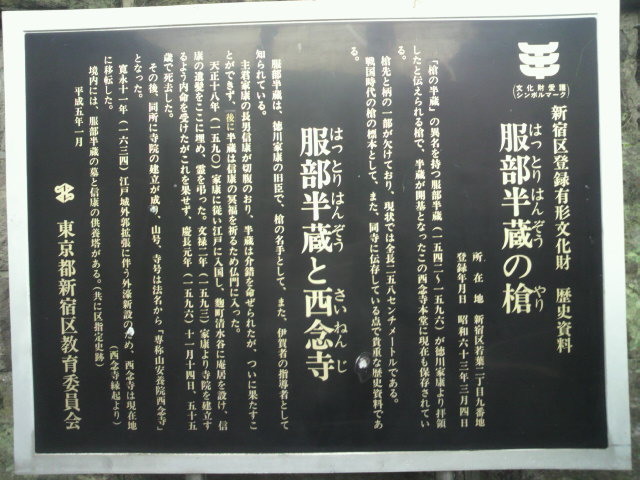 文化財愛護
シンボルマーク
新宿区登録有形文化財　歴史資料
はっとりはんぞう　やり
服部半蔵の槍
所在地　新宿区若葉二丁目九番地
登録年月日　昭和六十三年三月四日
「槍の半蔵」の異名を持つ服部半蔵（一五四二～一五九六）が徳川家康より拝領
したと伝えられる槍で、半蔵が開基となったこの西念寺本堂に現在も保存されてい
る。
槍先と柄の一部が欠けており、現状では全長二五八センチメートルである。
戦国時代の槍の標本として、また、同寺に伝存している点で貴重な歴史資料であ
る。
はっとりはんぞう　さいねんじ
服部半蔵と西念寺
服部半蔵は、徳川家康の旧臣で、槍の名手として、また、伊賀者の指導者として
知られている。
主君家康の長男信康が切腹のおり、半蔵は介錯を命ぜられたが、ついに果たすこ
とができず、後に半蔵は信康の冥福を祈るため仏門に入った。
天正十八年（一五九〇）家康に従い江戸に入国し、麹町清水谷に庵居を設け、信
康の遺髪をここに埋め、霊を弔った。文禄二年（一五九三）家康より寺院を建立す
るよう内命を受けたがこれを果せず、慶長元年（一五九六）十一月十四日、五十五
歳で死去した。
その後、同所に寺院の建立が成り、山号、寺号は法名から「専称山安養院西念寺」
となった。
寛永十一年（一六三四）江戸城外郭拡張に伴う外濠新設のため、西念寺は現在地
に移転した。（西念寺縁起より）
境内には、服部半蔵の墓と信康の供養塔がある。（共に区指定史跡）
平成五年一月
東京都新宿区教育委員会